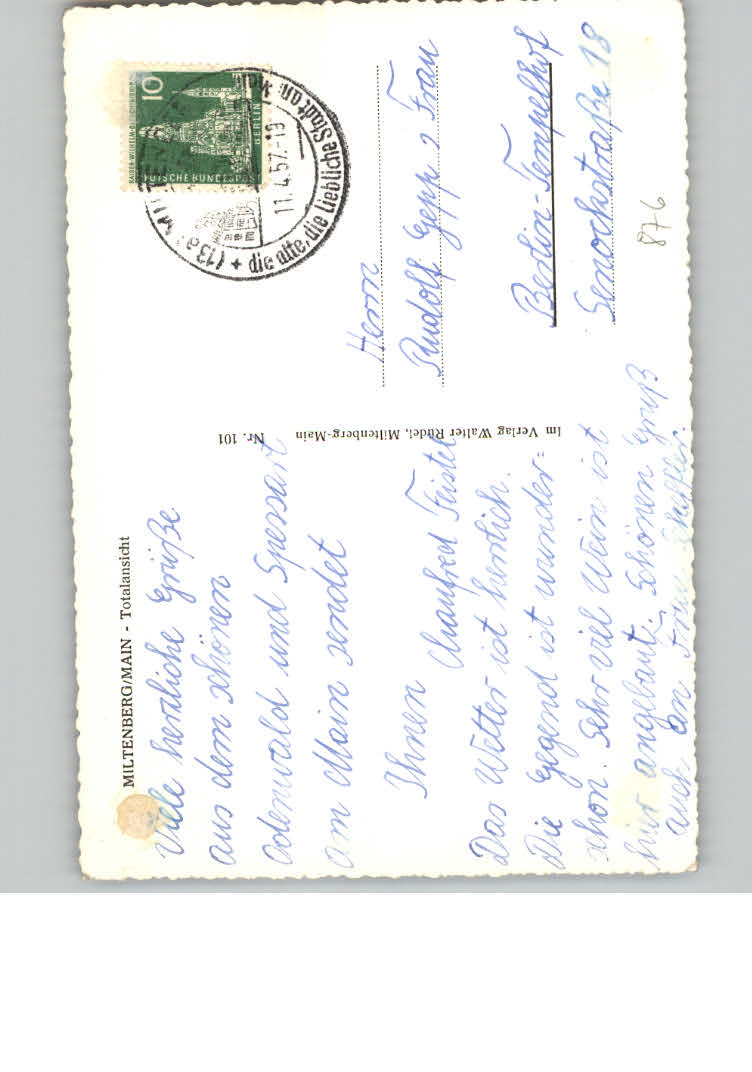 MILTENBERG/MAIN - Totalansicht
Viele herzliche Grüße
aus dem schönen
Odenwald und Spessart
am Main sendet
Ihnen Manfred
Das Wetter ist herrlich.
Die Gegend ist wunder=
schön. Sehr viel Wein ist
hier angebaut. Schönen Gruß
auch an Frau
Im Verlag Walter Rüdel, Miltenberg-Main Nr. 101
10
DEUTSCHE BUNDESPOST
BERLIN
(13a) MILT
11.4.57.-19
die alte, die liebliche Stadt am Main
Herrn
Rudolf Gepp u Frau
Berlin-Tempelhof
18
876